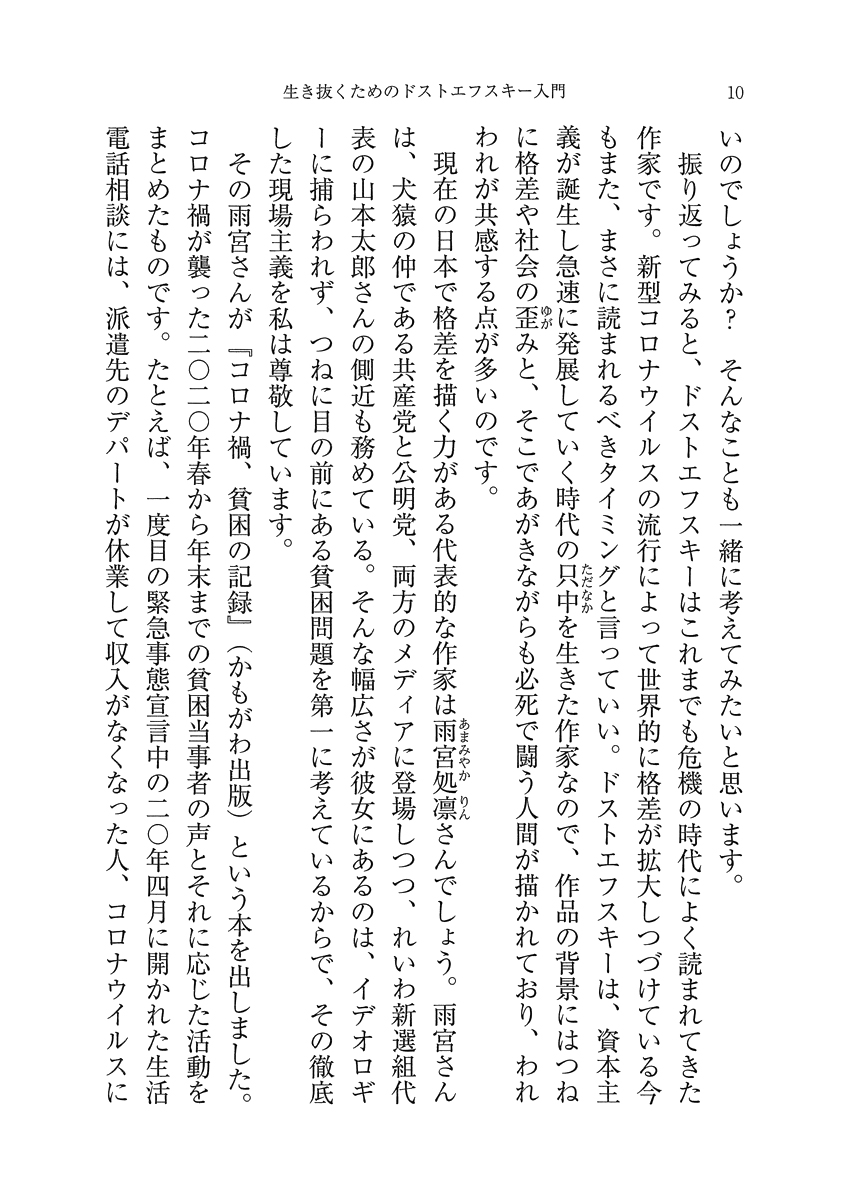 生き抜くためのドストエフスキー入門
10
いのでしょうか？　そんなことも一緒に考えてみたいと思います。
　振り返ってみると、ドストエフスキーはこれまでも危機の時代によく読まれてきた
作家です。新型コロナウイルスの流行によって世界的に格差が拡大しつづけている今
もまた、まさに読まれるべきタイミングと言っていい。ドストエフスキーは、資本主
義が誕生し急速に発展していく時代の只中を生きた作家なので、作品の背景にはつね
ただなか
に格差や社会の歪みと、そこであがきながらも必死で闘う人間が描かれており、われ
ゆが
われが共感する点が多いのです。
　現在の日本で格差を描く力がある代表的な作家は雨宮処凛さんでしょう。雨宮さん
あまみやか りん
は、犬猿の仲である共産党と公明党、両方のメディアに登場しつつ、れいわ新選組代
表の山本太郎さんの側近も務めている。そんな幅広さが彼女にあるのは、イデオロギ
ーに捕らわれず、つねに目の前にある貧困問題を第一に考えているからで、その徹底
した現場主義を私は尊敬しています。
　その雨宮さんが『コロナ禍、貧困の記録』（かもがわ出版）という本を出しました。
コロナ禍が襲った二〇二〇年春から年末までの貧困当事者の声とそれに応じた活動を
まとめたものです。たとえば、一度目の緊急事態宣言中の二〇年四月に開かれた生活
電話相談には、派遣先のデパートが休業して収入がなくなった人、コロナウイルスに